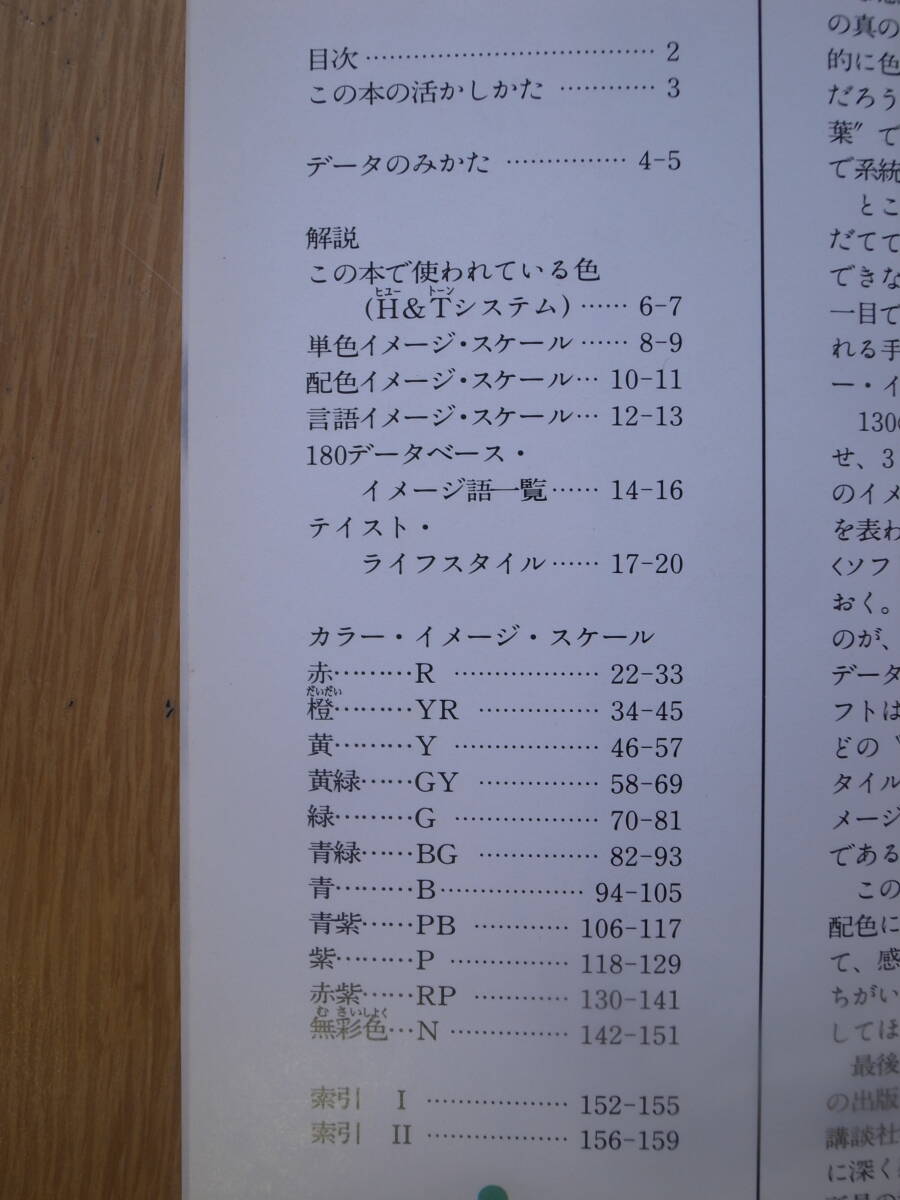 目次………………………………2
この本の活かしかた …………3
データのみかた ……………4-5
解説
この本で使われている色
ヒュー トーン
(H&Tシステム)……6-7
単色イメージ・スケール……8-9
配色イメージ・スケール…10-11
言語イメージ・スケール…12-13
180データベース・
イメージ語一覧……14-16
テイスト・
ライフスタイル……17-20
カラー・イメージ・スケール
赤………R ………………22-33
だいだい
橙………YR ……………34-45
黄………Y ………………46-57
黄緑……GY ……………58-69
緑………G ………………70-81
青緑……BG ……………82-93
青………B………………94-105
青紫……PB …………106-117
紫………P ……………118-129
赤紫……RP …………130-141
むさいしょく
無彩色…N ……………142-151
索引 I ………………152-155
索引 II ………………156-159
の真の
的に色
だろう
葉〟で
で系統
とこ
だてて
できな
一目で
れる手
ー・イ
130
せ、3
のイメ
を表わ
〈ソフ
おく。
のが、
データ
フトは
どの〝
タイル
メージ
である
この
配色に
て、感
ちがい
してほ
最後
の出版
講談社
に深く